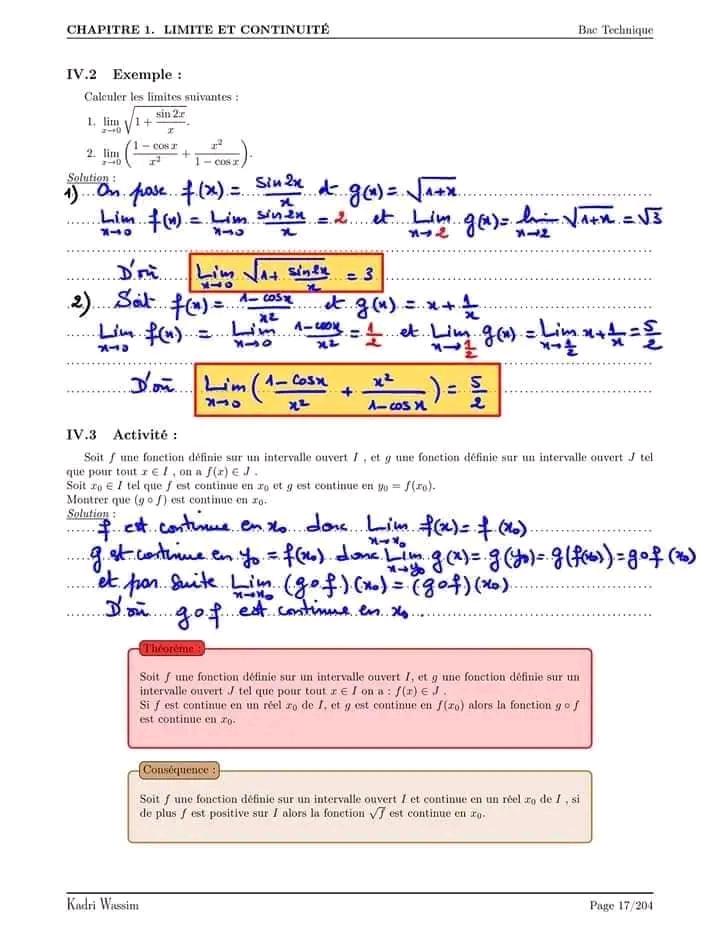 CHAPITRE 1. LIMITE ET CONTINUITÉ Bac Technique
IV.2 Exemple :
Calculer les limites suivantes :
1. lim_{x→0} √(1 + sin 2x / x).
2. lim_{x→0} ((1 − cos x)/x² + x²/(1 − cos x)).
Solution :
1) On pose f(x) = sin2x/x et g(x) = √(1+x)
Lim_{x→0} f(x) = Lim_{x→0} sin2x/x = 2 et Lim_{x→2} g(x) = lim_{x→2} √(1+x) = √3
D'où Lim_{x→0} √(1+ sin2x/x) = 3
2) Soit f(x) = (1−cosx)/x² et g(x) = x + 1/x
Lim_{x→0} f(x) = Lim_{x→0} (1−cosx)/x² = 1/2 et Lim_{x→1/2} g(x) = Lim_{x→1/2} x + 1/x = 5/2
D'où Lim_{x→0} ((1−Cosx)/x² + x²/(1−cosx)) = 5/2
IV.3 Activité :
Soit f une fonction définie sur un intervalle ouvert I , et g une fonction définie sur un intervalle ouvert J tel
que pour tout x ∈ I , on a f(x) ∈ J .
Soit x₀ ∈ I tel que f est continue en x₀ et g est continue en y₀ = f(x₀).
Montrer que (g ∘ f) est continue en x₀.
Solution :
f est continue en x₀ donc Lim_{x→x₀} f(x) = f(x₀)
g et continue en y₀ = f(x₀) donc Lim_{x→y₀} g(x) = g(y₀) = g(f(x₀)) = g∘f (x₀)
et par suite Lim_{x→x₀} (g∘f)(x₀) = (g∘f)(x₀)
D'où g∘f est continue en x₀
Théorème :
Soit f une fonction définie sur un intervalle ouvert I, et g une fonction définie sur un
intervalle ouvert J tel que pour tout x ∈ I on a : f(x) ∈ J .
Si f est continue en un réel x₀ de I, et g est continue en f(x₀) alors la fonction g ∘ f
est continue en x₀.
Conséquence :
Soit f une fonction définie sur un intervalle ouvert I et continue en un réel x₀ de I , si
de plus f est positive sur I alors la fonction √f est continue en x₀.
Kadri Wassim Page 17/204